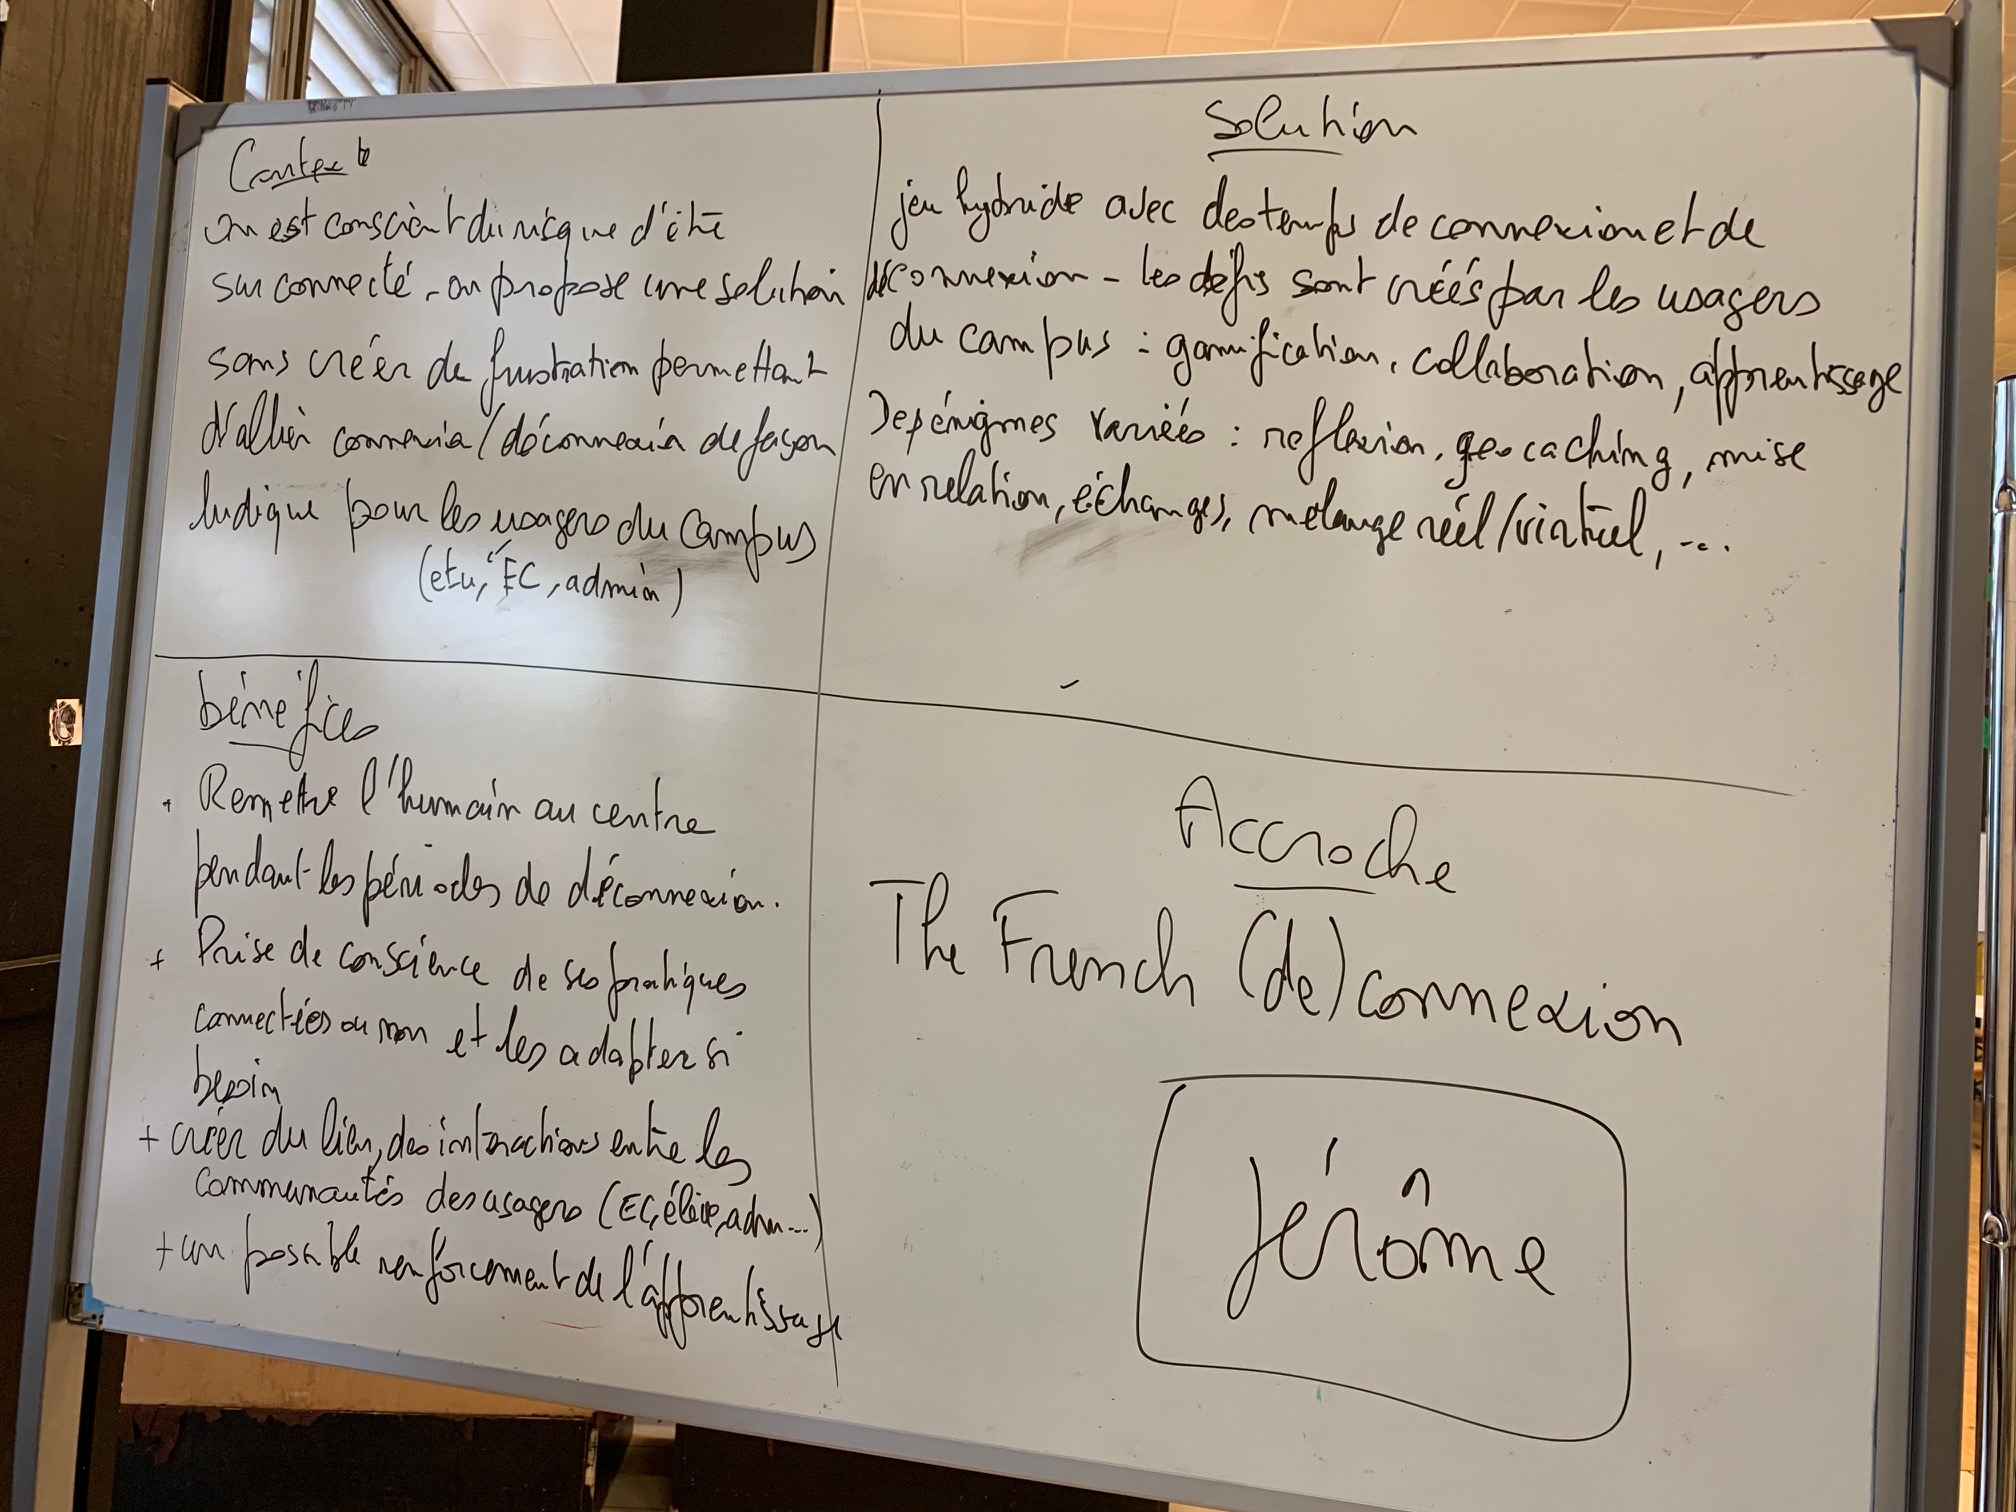 Contexte
on est conscient du risque d'être
sur connecté - on propose une solution
sans créer de frustration permettant
d'allier connexion/déconnexion de façon
ludique pour les usagers du Campus
(etu, EC, admin)
Solution
jeu hybride avec des temps de connexion et de
déconnexion - les défis sont créés par les usagers
du campus : gamification, collaboration, apprentissage
Des énigmes variées : reflexion, geocaching, mise
en relation, échanges, mélange réel/virtuel, ...
bénéfices
+ Remettre l'humain au centre
pendant les périodes de déconnexion.
+ Prise de conscience de ses pratiques
connectées ou non et les adapter si
besoin
+ créer du lien, des interactions entre les
communautés des usagers (EC, élève, adm...)
+ un possible renforcement de l'apprentissage
Accroche
The French (de)connexion
Jérôme